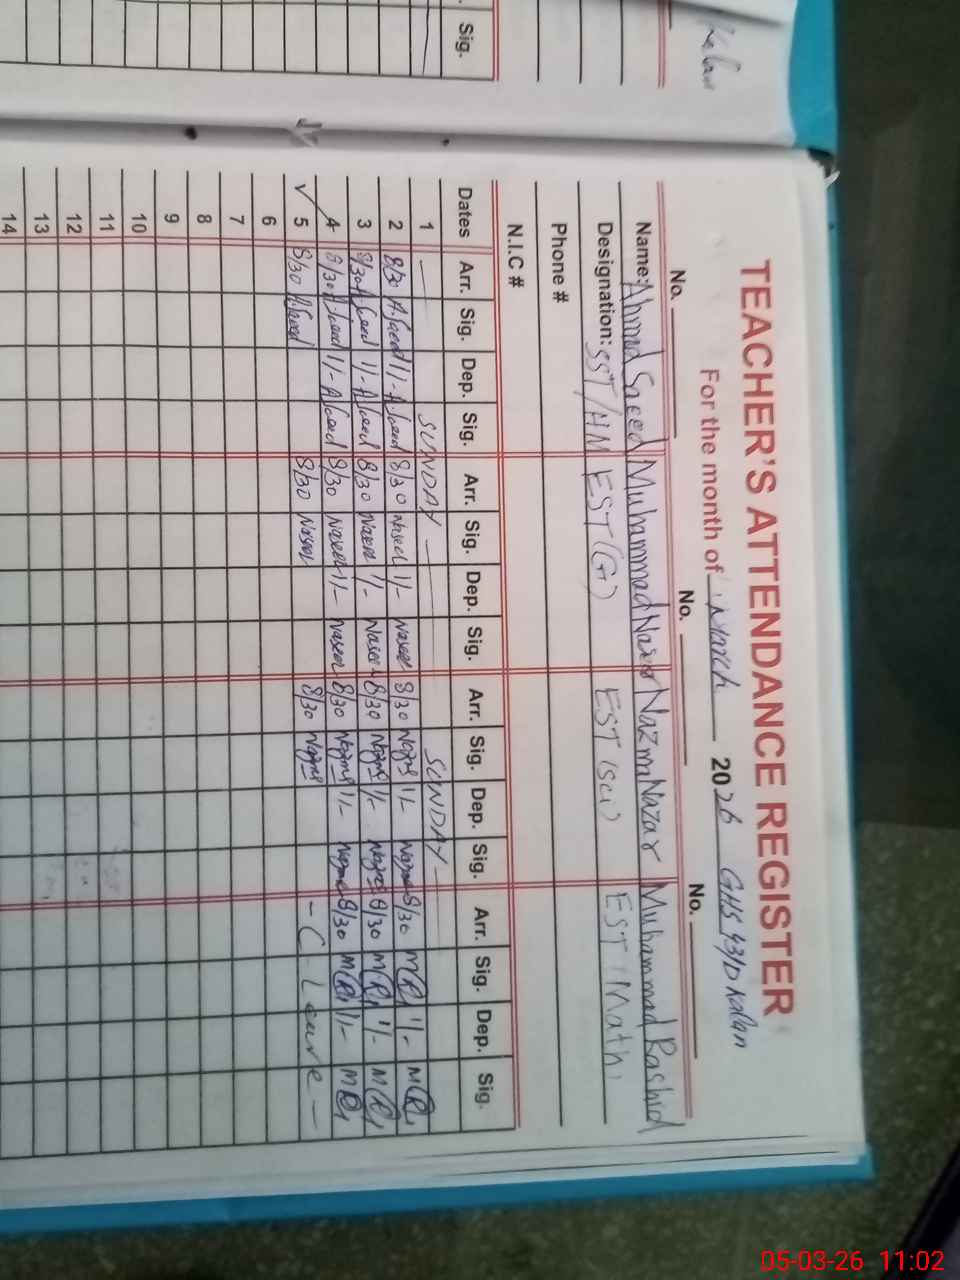 Sig.
Kalan
TEACHER'S ATTENDANCE REGISTER
For the month of March 2026 GHS 43/D Kalan
No. No. No.
Name: Ahmad Saeed Muhammad Naseer Nazma Nazar Muhammad Rashid
Designation: SST/HM EST (G) EST (Sci) EST (Math)
Phone #
N.I.C #
Dates Arr. Sig. Dep. Sig. Arr. Sig. Dep. Sig. Arr. Sig. Dep. Sig. Arr. Sig. Dep. Sig.
1 — SUNDAY — SUNDAY —
2 8/30 A.Saeed 11/- A.Saeed 8/30 Naseer 11/- Naseer 8/30 Nazma 11/- Nazma 8/30 MR 11/- MR
3 8/30 A.Saeed 11/- A.Saeed 8/30 Naseer 11/- Naseer 8/30 Nazma 11/- Nazma 8/30 MR 11/- MR
4 8/30 A.Saeed 11/- A.Saeed 8/30 Naseer 11/- Naseer 8/30 Nazma 11/- Nazma 8/30 MR 11/- MR
✓ 5 8/30 A.Saeed 8/30 Naseer 8/30 Nazma - C Leave -
6
7
8
9
10
11
12
13
14
05-03-26 11:02